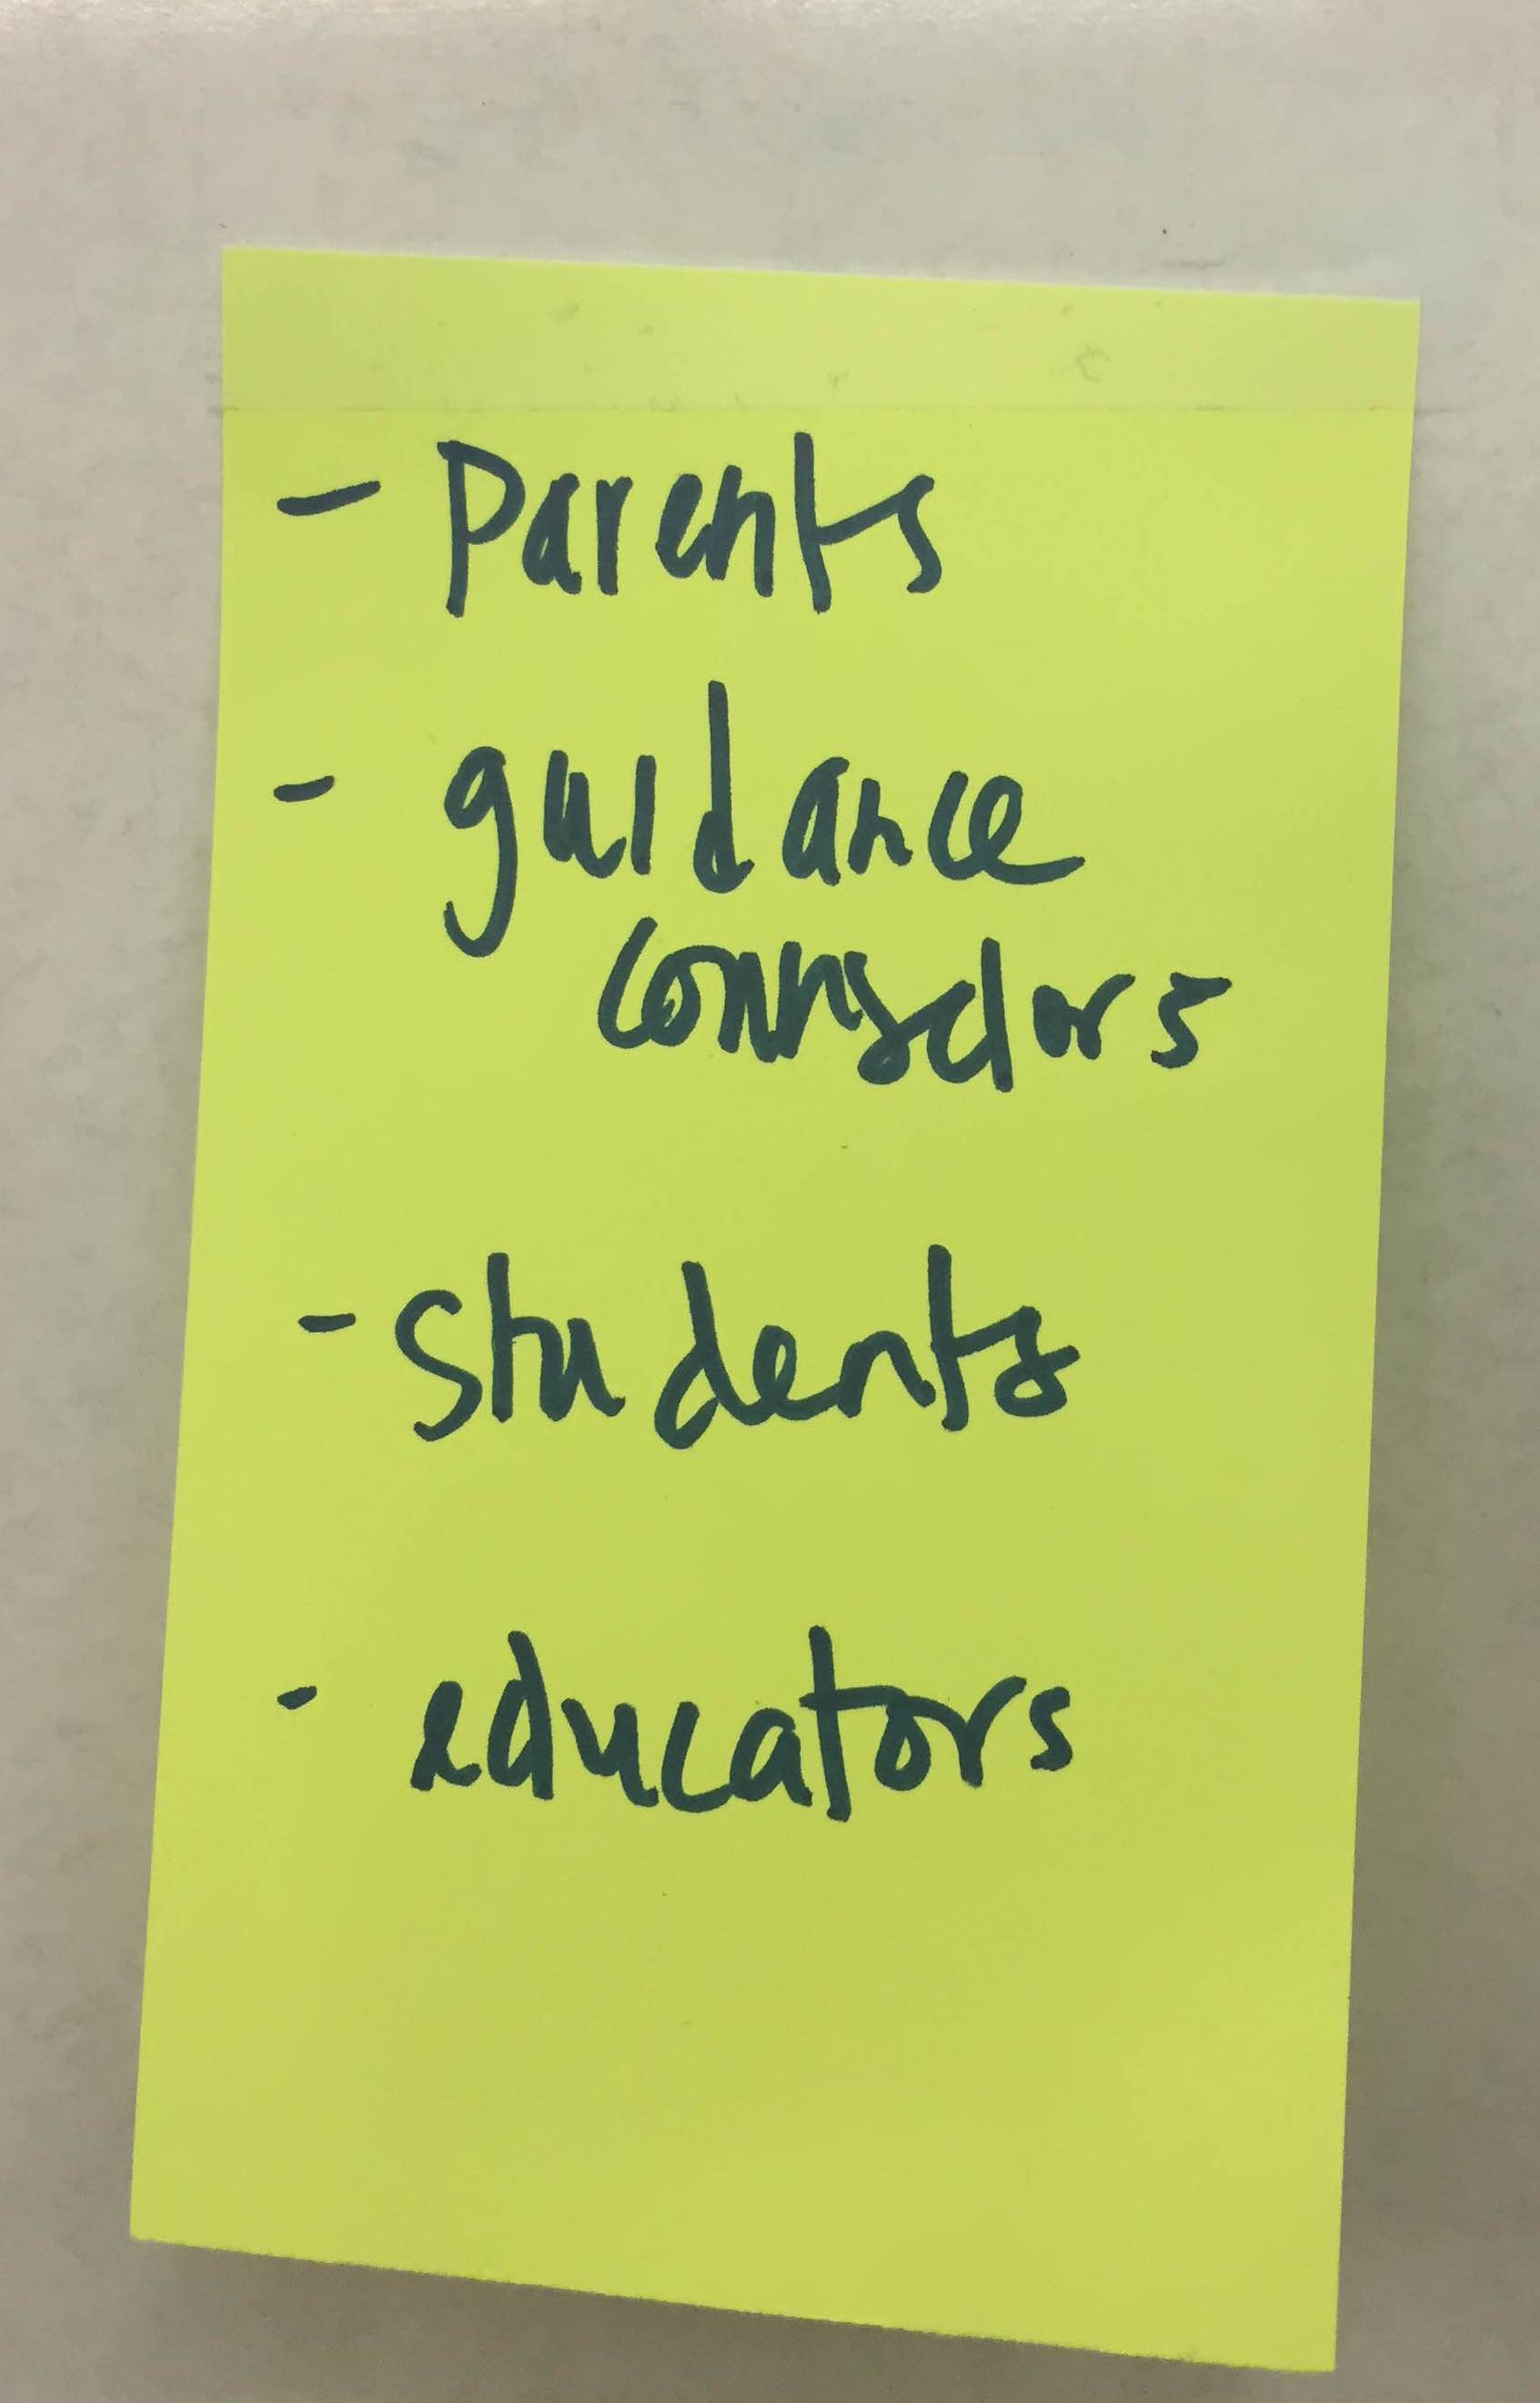 - Parents
- guidance
counselors
- students
- educators